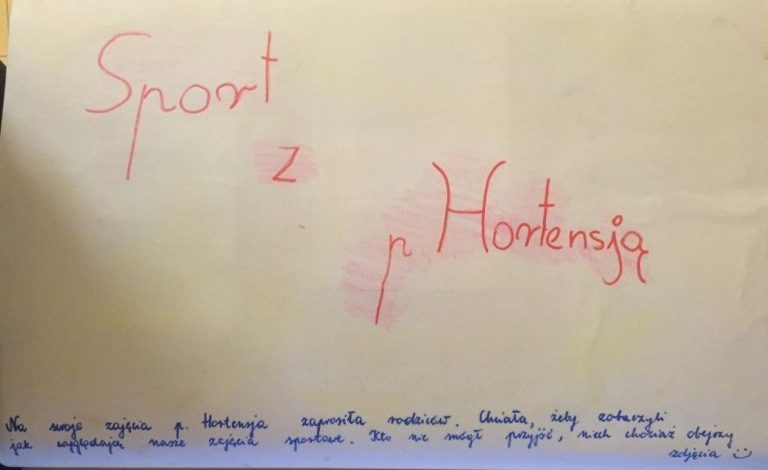 Sport
z
p Hortensją
Na swoje zajęcia p. Hortensja zaprosiła rodziców. Chciała, żeby zobaczyli
jak wyglądają nasze zajęcia sportowe. Kto nie mógł przyjść, niech chociaż obejrzy
zdjęcia :)